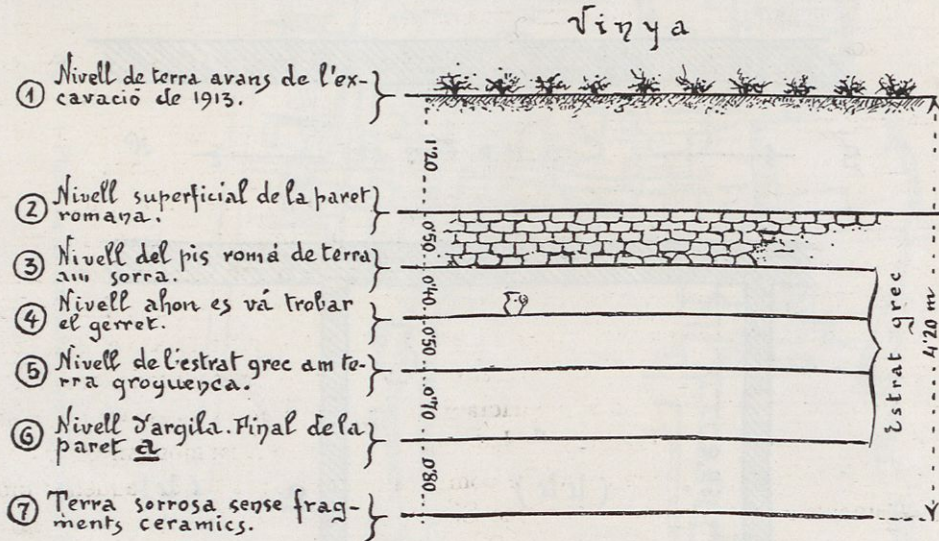 Vinya
① Nivell de terra avans de l'ex-
cavació de 1913.
1'20
② Nivell superficial de la paret
romana.
0'50
③ Nivell del pis romá de terra
am sorra.
0'40
④ Nivell ahon es vá trobar
el gerret.
0'50
⑤ Nivell de l'estrat grec am te-
rra groguenca.
0'70
⑥ Nivell d'argila. Final de la
paret a
0'80
⑦ Terra sorrosa sense frag-
ments ceramics.
Estrat grec
4'20 m